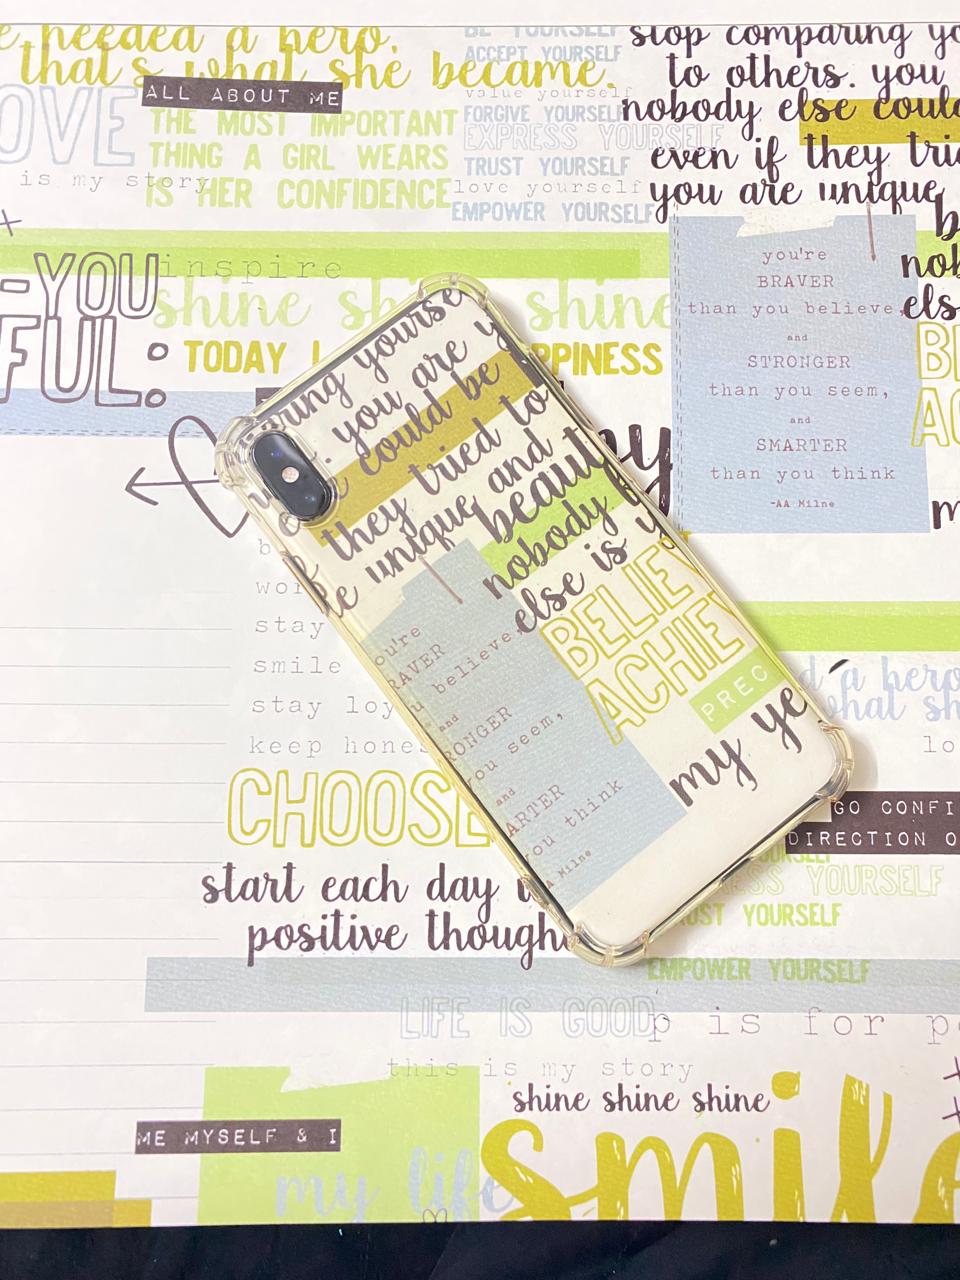 e needed a hero,
that's what she became.
OVE
ALL ABOUT ME
THE MOST IMPORTANT
THING A GIRL WEARS
IS HER CONFIDENCE
is my story
BE YOURSELF
ACCEPT YOURSELF
value yourself
FORGIVE YOURSELF
EXPRESS YOURSELF
TRUST YOURSELF
love yourself
EMPOWER YOURSELF
stop comparing yo
to others. you
nobody else could
even if they trie
you are unique
b
nob
els
BE
AC
m
you're
BRAVER
than you believe,
and
STRONGER
than you seem,
and
SMARTER
than you think
-AA Milne
inspire
-YOU
FUL:
shine sh shine
TODAY I PPINESS
paring yourse
. you are y
could be
they tried to
e unique and
beaut
nobody
else is y
BELIEV
ACHIEV
PREC
my ye
ou're
RAVER
u believe,
and
RONGER
you seem,
and
ARTER
you think
A Milne
b
wor
stay
smile
stay loy
keep hones
CHOOSE
start each day
positive though
d a hero
what sh
lo
GO CONFI
DIRECTION O
YOURSELF
ESS YOURSELF
RUST YOURSELF
EMPOWER YOURSELF
LIFE IS GOOD
p is for p
this is my story
shine shine shine
ME MYSELF & I
my life
smile